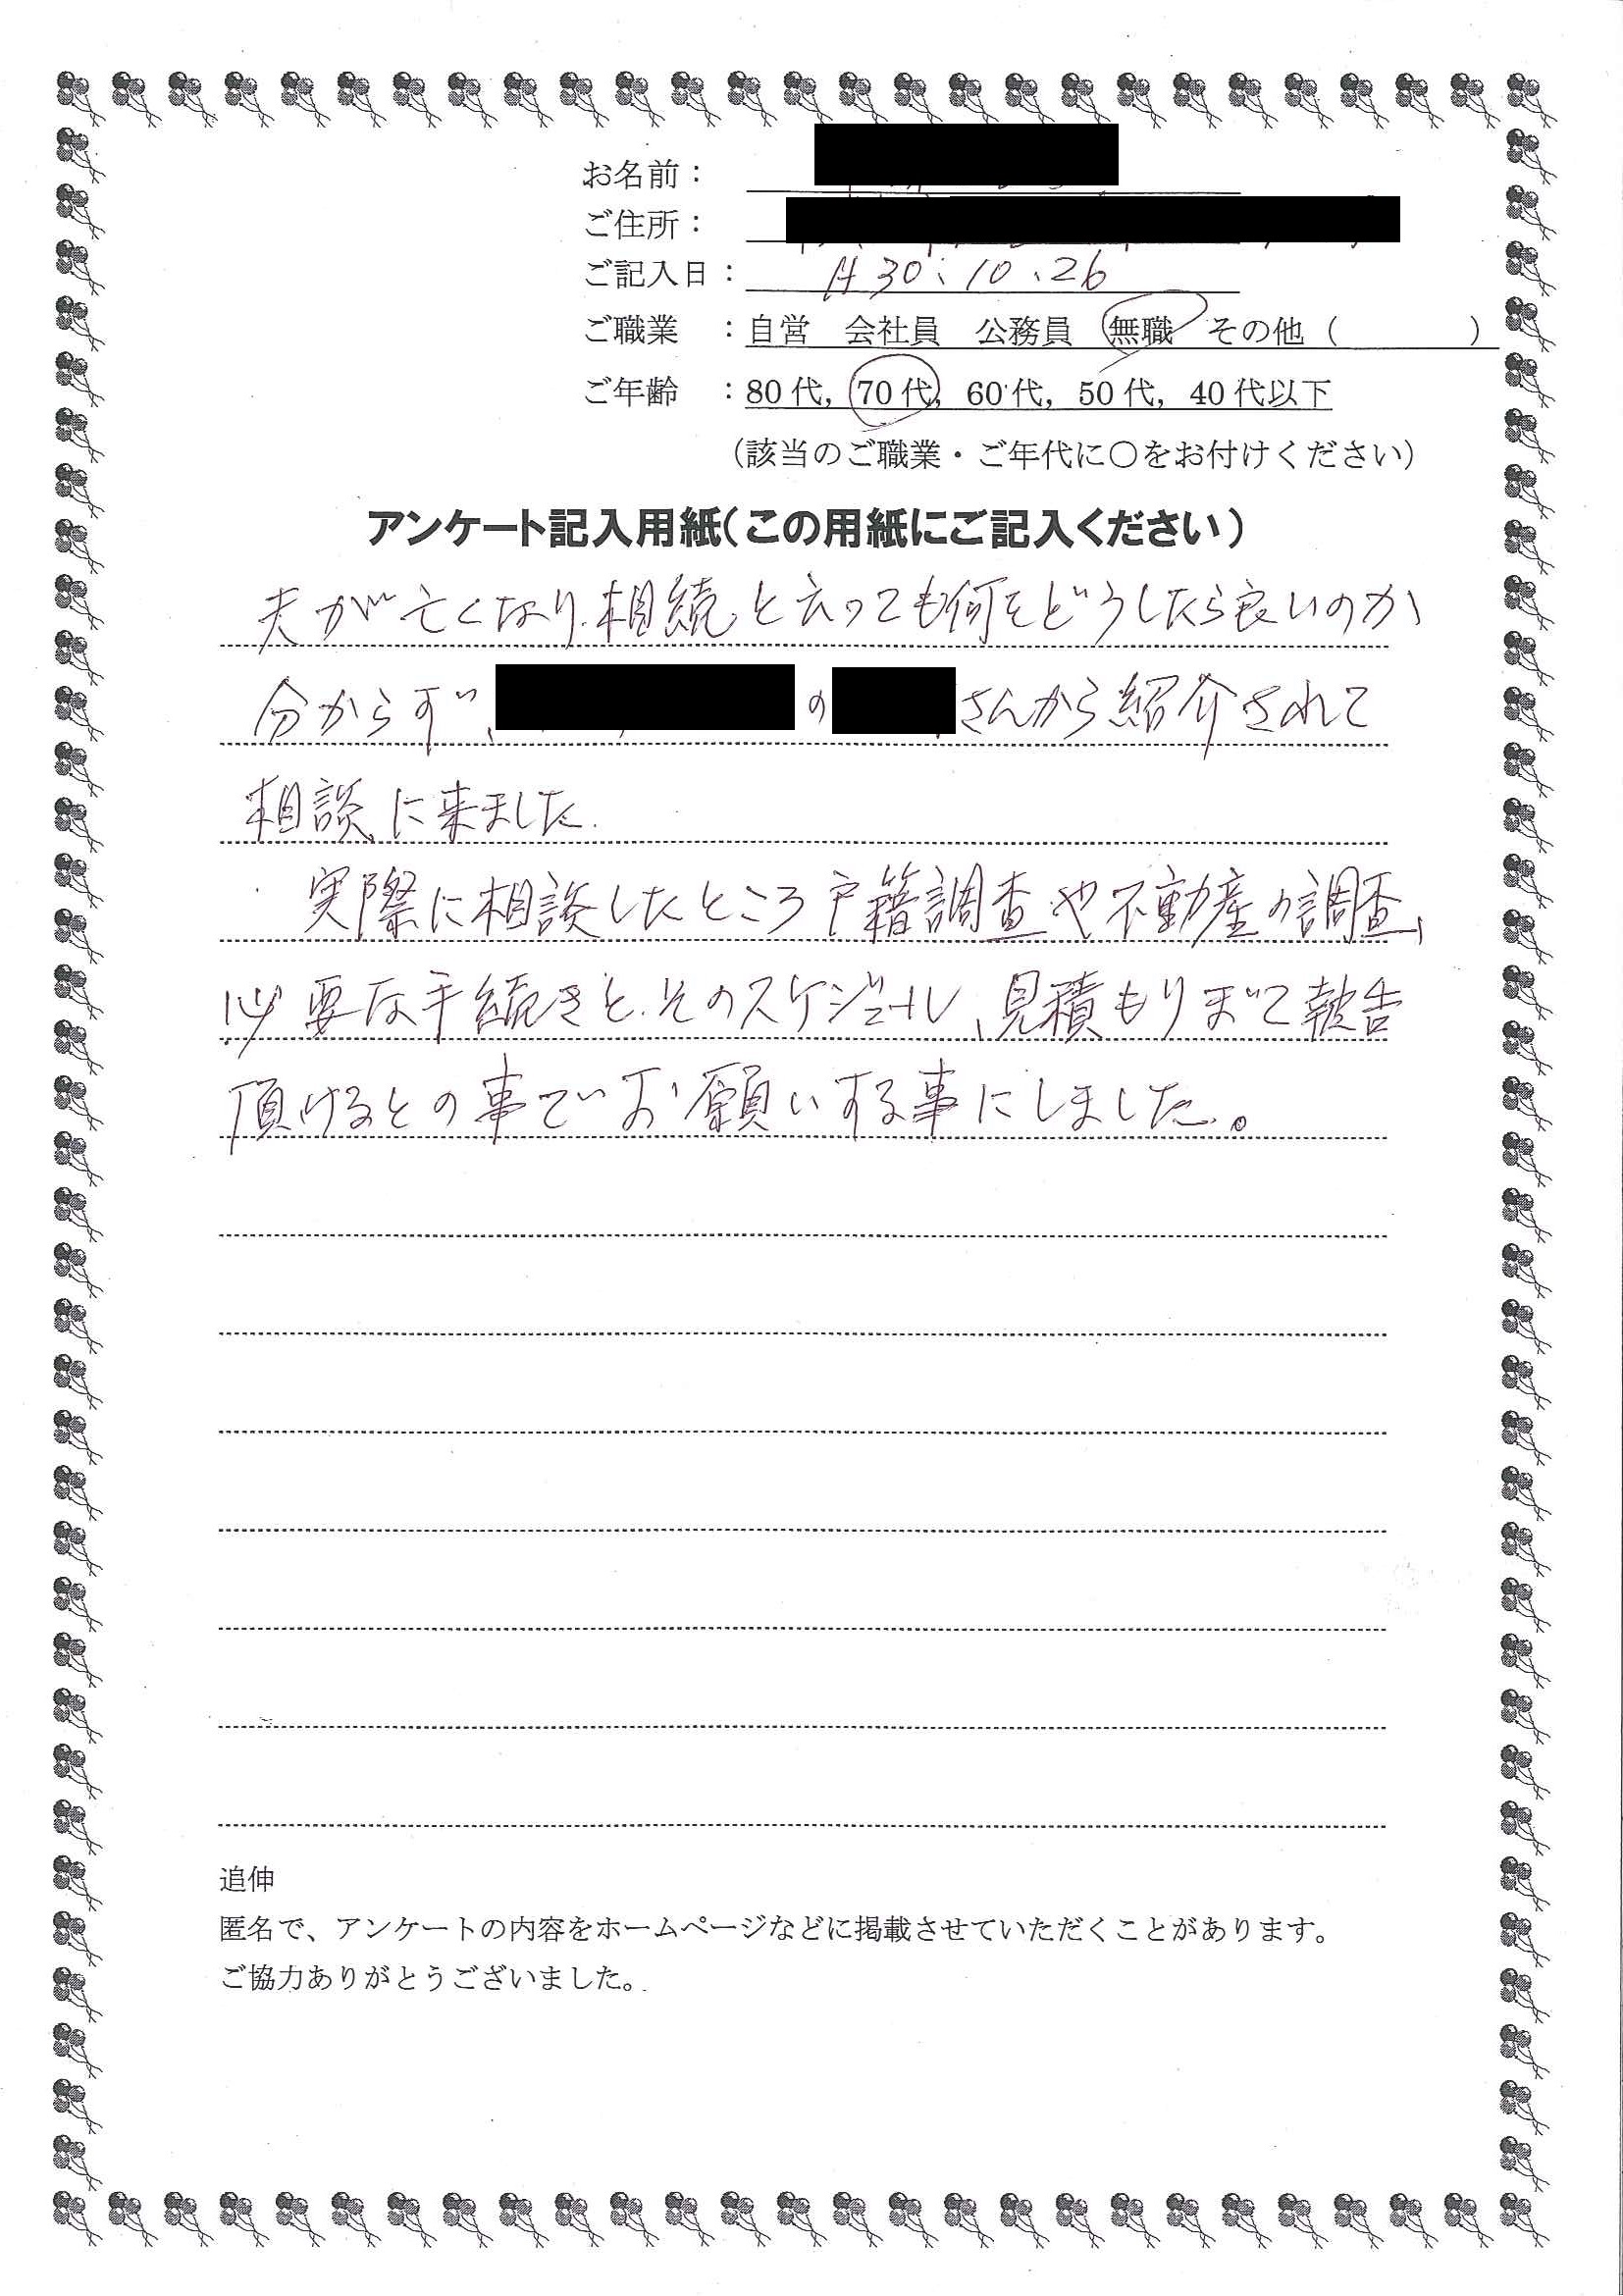 お名前：
ご住所：
ご記入日：H30.10.26
ご職業 ：自営 会社員 公務員 無職 その他（ ）
ご年齢 ：80代，70代，60代，50代，40代以下
（該当のご職業・ご年代に○をお付けください）
アンケート記入用紙（この用紙にご記入ください）
夫が亡くなり、相続と云っても何をどうしたら良いのか
分からず、の さんから紹介されて
相談に来ました.
実際に相談したところ戸籍調査や不動産の調査、
必要な手続きと、そのスケジュール、見積もりまで報告
頂けるとの事でお願いする事にしました。
追伸
匿名で、アンケートの内容をホームページなどに掲載させていただくことがあります。
ご協力ありがとうございました。